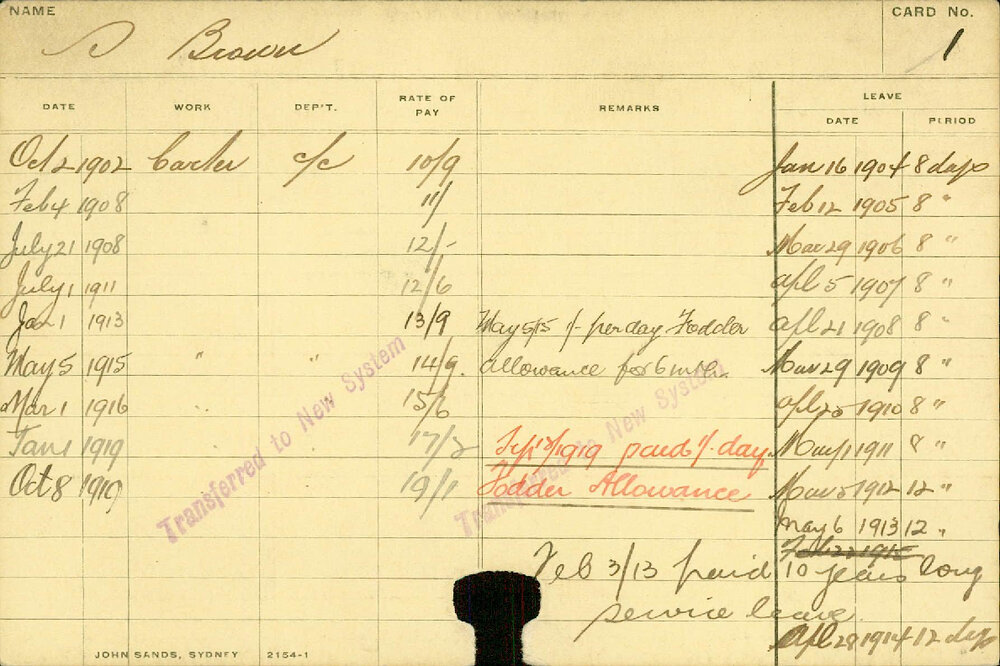 NAME
CARD No.
Brown
1
DATE WORK DEP'T. RATE OF PAY REMARKS LEAVE
DATE PERIOD
Oct 2 1902 Carter c/c 10/9 Jan 16 1904 8 days
Feb 4 1908 11/ Feb 12 1905 8 "
July 21 1908 12/- Mar 29 1906 8 "
July 1 1911 12/6 Apl 5 1907 8 "
1 1913 13/9 May 5/15 1/- per day Fodder Apl 21 1908 8 "
May 5 1915 " " 14/9. allowance for 6 mths. Mar 29 1909 8 "
Mar 1 1916 15/6 Apl 25 1910 8 "
Jan 1 1919 17/2 1919 paid 1/- day 1911 8 "
Oct 8 1919 19/1 Fodder Allowance 1912 12 "
May 6 1913 12 "
Feb 3/13 paid 10 years long
service leave
Apl 28 1914 12 days
Transferred to New System
Transferred to New System
JOHN SANDS, SYDNEY 2154-1